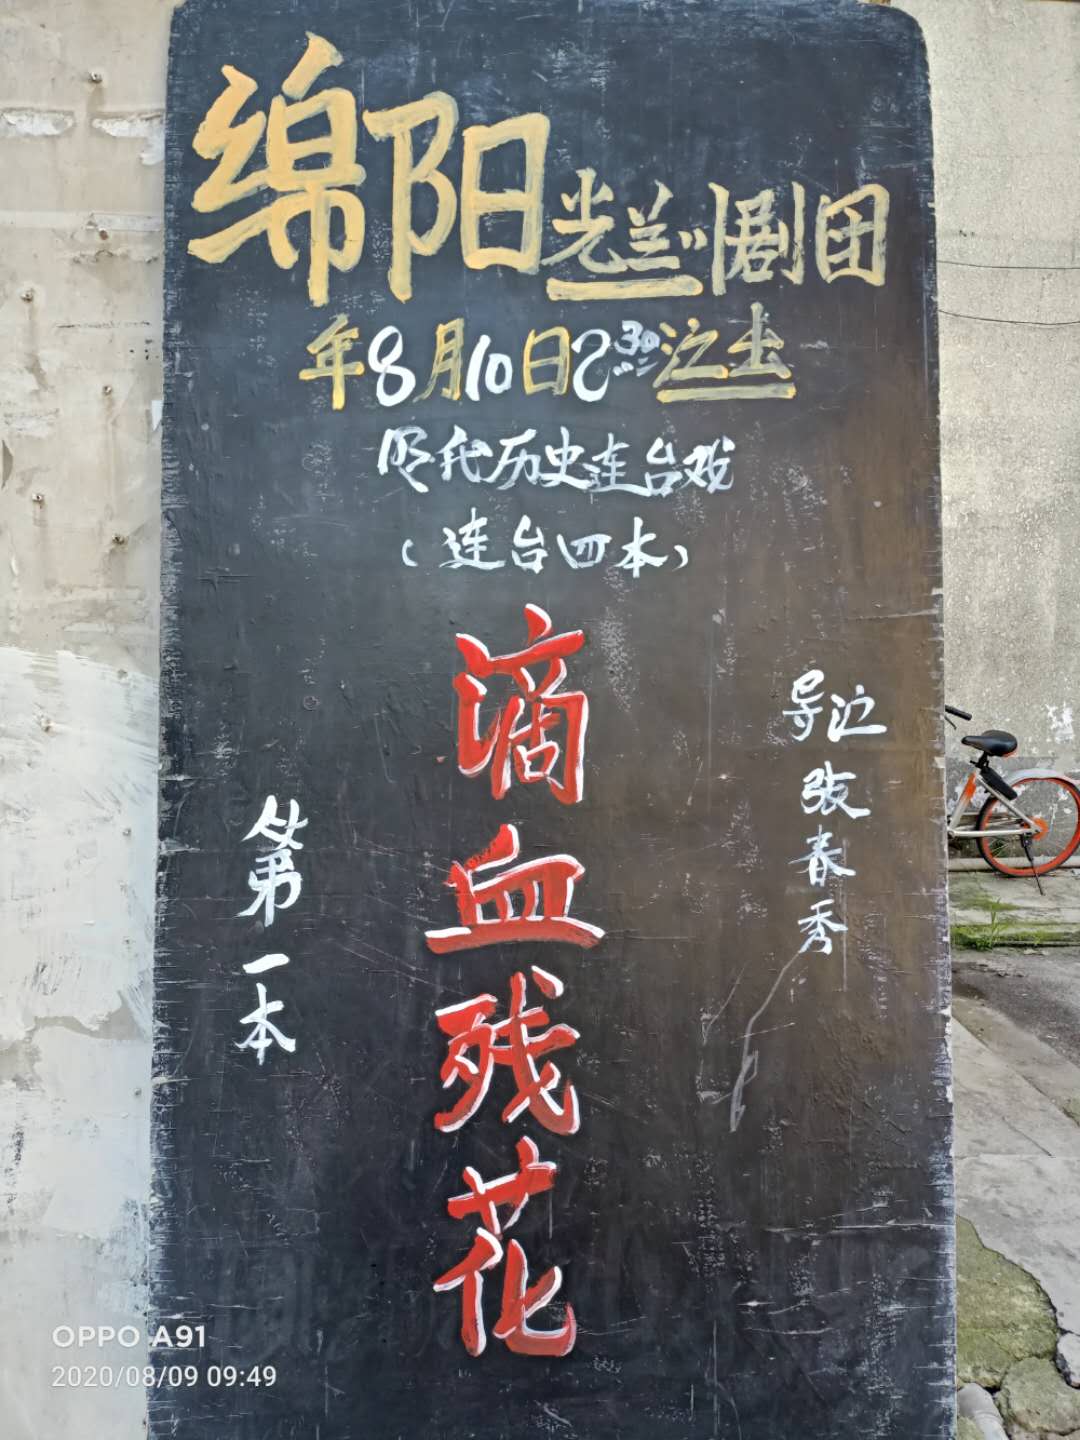 绵阳光兰川剧团
年8月10日2:30演出
明代历史连台戏
（连台四本）
滴血残花
导演张春秀
第一本
OPPO A91
2020/08/09 09:49